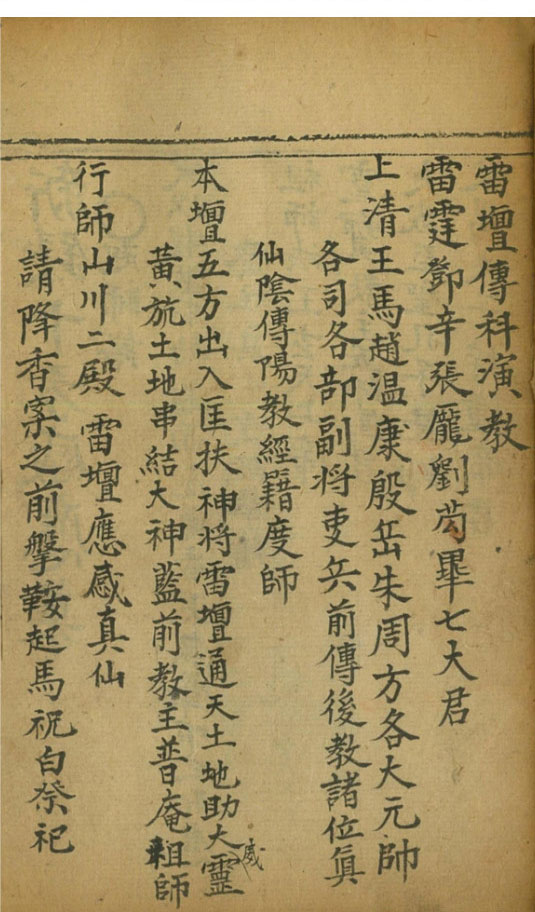 雷壇傳科演教
雷霆鄧辛張龐劉苟畢七大君
上清王馬趙温康殷岳朱周方各大元帥
各司各部副将吏兵前傳後教諸位眞
仙陰傳陽教經籍度師
本壇五方出入匡扶神将雷壇通天土地助大靈威
黃旄土地串結大神藍前教主普庵祖師
行師山川二殿 雷壇應感真仙
請降香案之前擎鞍起馬祝白祭祀